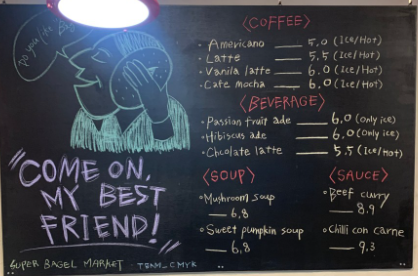 Do you like Bag
<COFFEE>
· Americano — 5,0 (Ice/Hot)
· Latte — 5,5 (Ice/Hot)
· Vanilla latte — 6,0 (Ice/Hot)
· Cafe mocha — 6,0 (Ice/Hot)
<BEVERAGE>
· Passion fruit ade — 6,0 (only ice)
· Hibiscus ade — 6,0 (only ice)
· Chcolate latte — 5,5 (Ice/Hot)
<SOUP>
· Mushroom soup
— 6,8
· Sweet pumpkin soup
— 6,8
<SAUCE>
· Beef curry
— 8,9
· Chilli con carne
— 9,3
"COME ON,
MY BEST
FRIEND!"
SUPER BAGEL MARKET · TEAM_CMYK